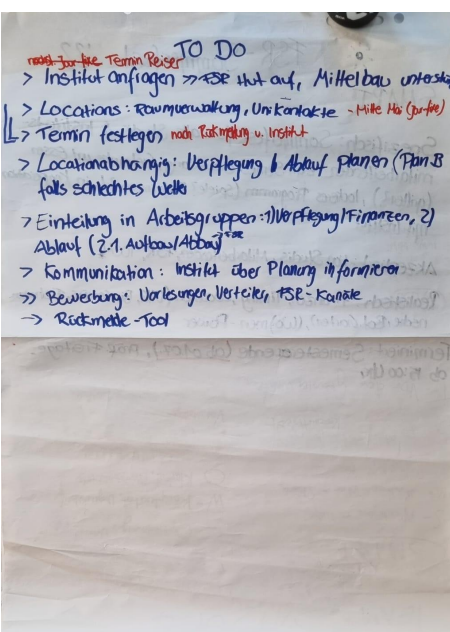 TO DO
nächst. Jour-fixe Termin Reiser
> Institut anfragen >> FSR Hut auf, Mittelbau unterstü
> Locations: Raumverwaltung, Unikontakte - Mitte Mai (Jour-fixe)
> Termin festlegen nach Rückmeldung v. Institut
> Locationabhängig: Verpflegung & Ablauf planen (Plan B
falls schlechtes Wetter
> Einteilung in Arbeitsgruppen: 1) Verpflegung/Finanzen, 2)
Ablauf (2.1. Aufbau/Abbau) → FSR
> Kommunikation: Institut über Planung informieren
>> Bewerbung: Vorlesungen, Verteiler, FSR-Kanäle
→ Rückmelde-Tool